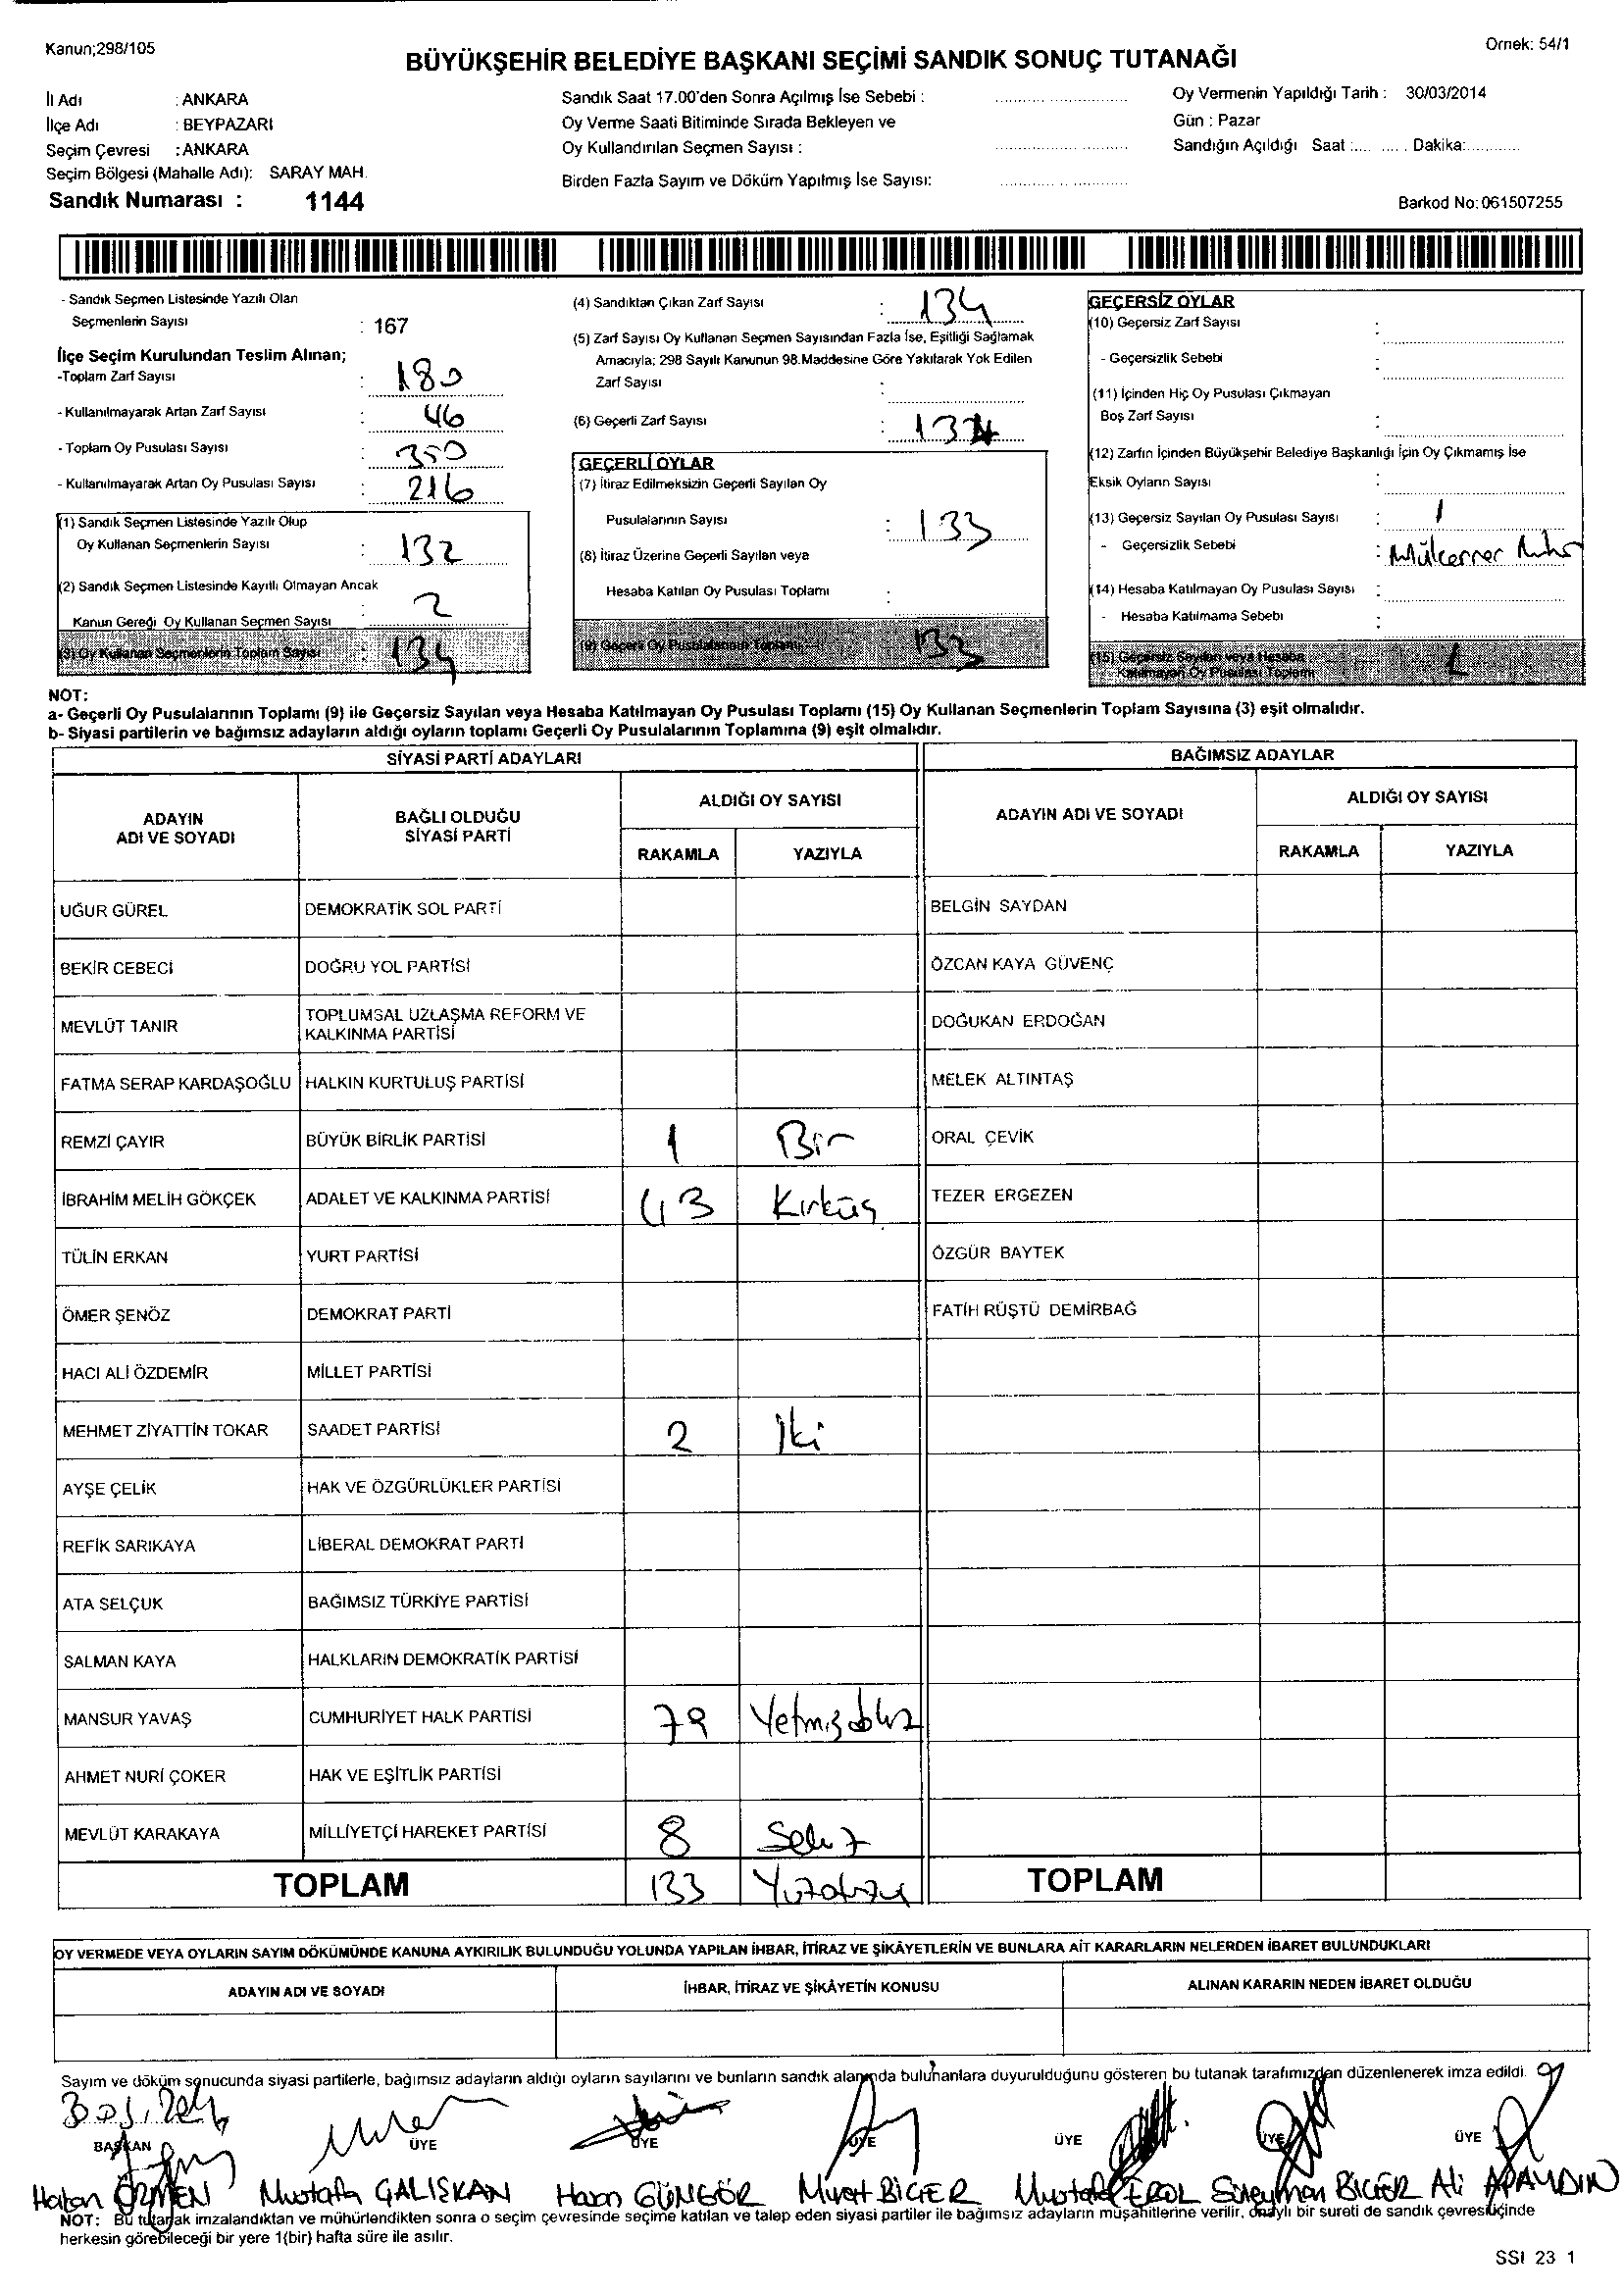 Kanun;298/105
Örnek: 54/1
BÜYÜKŞEHİR BELEDİYE BAŞKANI SEÇİMİ SANDIK SONUÇ TUTANAĞI
İl Adı : ANKARA
İlçe Adı : BEYPAZARI
Seçim Çevresi : ANKARA
Seçim Bölgesi (Mahalle Adı): SARAY MAH.
Sandık Numarası : 1144
Sandık Saat 17.00'den Sonra Açılmış İse Sebebi :
Oy Verme Saati Bitiminde Sırada Bekleyen ve
Oy Kullandırılan Seçmen Sayısı :
Birden Fazla Sayım ve Döküm Yapılmış İse Sayısı:
Oy Vermenin Yapıldığı Tarih : 30/03/2014
Gün : Pazar
Sandığın Açıldığı Saat :.... ..... . Dakika:............
Barkod No: 061507255
- Sandık Seçmen Listesinde Yazılı Olan
Seçmenlerin Sayısı : 167
İlçe Seçim Kurulundan Teslim Alınan;
-Toplam Zarf Sayısı : 180
- Kullanılmayarak Artan Zarf Sayısı : 46
- Toplam Oy Pusulası Sayısı : 350
- Kullanılmayarak Artan Oy Pusulası Sayısı : 216
(1) Sandık Seçmen Listesinde Yazılı Olup
Oy Kullanan Seçmenlerin Sayısı : 132
(2) Sandık Seçmen Listesinde Kayıtlı Olmayan Ancak
Kanun Gereği Oy Kullanan Seçmen Sayısı : 2
(3) Oy Kullanan Seçmenlerin Toplam Sayısı : 134
(4) Sandıktan Çıkan Zarf Sayısı : 134
(5) Zarf Sayısı Oy Kullanan Seçmen Sayısından Fazla İse, Eşitliği Sağlamak
Amacıyla; 298 Sayılı Kanunun 98.Maddesine Göre Yakılarak Yok Edilen
Zarf Sayısı :
(6) Geçerli Zarf Sayısı : 134
GEÇERLİ OYLAR
(7) İtiraz Edilmeksizin Geçerli Sayılan Oy
Pusulalarının Sayısı : 133
(8) İtiraz Üzerine Geçerli Sayılan veya
Hesaba Katılan Oy Pusulası Toplamı :
(9) Geçerli Oy Pusulalarının Toplamı : 133
GEÇERSİZ OYLAR
(10) Geçersiz Zarf Sayısı :
- Geçersizlik Sebebi :
(11) İçinden Hiç Oy Pusulası Çıkmayan
Boş Zarf Sayısı :
(12) Zarfın İçinden Büyükşehir Belediye Başkanlığı İçin Oy Çıkmamış İse
Eksik Oyların Sayısı :
(13) Geçersiz Sayılan Oy Pusulası Sayısı : 1
- Geçersizlik Sebebi :
(14) Hesaba Katılmayan Oy Pusulası Sayısı :
- Hesaba Katılmama Sebebi :
(15) Geçersiz Sayılan veya Hesaba
Katılmayan Oy Pusulası Toplamı : 1
NOT:
a- Geçerli Oy Pusulalarının Toplamı (9) ile Geçersiz Sayılan veya Hesaba Katılmayan Oy Pusulası Toplamı (15) Oy Kullanan Seçmenlerin Toplam Sayısına (3) eşit olmalıdır.
b- Siyasi partilerin ve bağımsız adayların aldığı oyların toplamı Geçerli Oy Pusulalarının Toplamına (9) eşit olmalıdır.
SİYASİ PARTİ ADAYLARI
BAĞIMSIZ ADAYLAR
ADAYIN
ADI VE SOYADI
BAĞLI OLDUĞU
SİYASİ PARTİ
ALDIĞI OY SAYISI
RAKAMLA YAZIYLA
ADAYIN ADI VE SOYADI
ALDIĞI OY SAYISI
RAKAMLA YAZIYLA
UĞUR GÜREL DEMOKRATİK SOL PARTİ BELGİN SAYDAN
BEKİR CEBECİ DOĞRU YOL PARTİSİ ÖZCAN KAYA GÜVENÇ
MEVLÜT TANIR TOPLUMSAL UZLAŞMA REFORM VE
KALKINMA PARTİSİ DOĞUKAN ERDOĞAN
FATMA SERAP KARDAŞOĞLU HALKIN KURTULUŞ PARTİSİ MELEK ALTINTAŞ
REMZİ ÇAYIR BÜYÜK BİRLİK PARTİSİ 1 Bir ORAL ÇEVİK
İBRAHİM MELİH GÖKÇEK ADALET VE KALKINMA PARTİSİ 43 Kırküç TEZER ERGEZEN
TÜLİN ERKAN YURT PARTİSİ ÖZGÜR BAYTEK
ÖMER ŞENÖZ DEMOKRAT PARTİ FATİH RÜŞTÜ DEMİRBAĞ
HACI ALİ ÖZDEMİR MİLLET PARTİSİ
MEHMET ZİYATTİN TOKAR SAADET PARTİSİ 2 İki
AYŞE ÇELİK HAK VE ÖZGÜRLÜKLER PARTİSİ
REFİK SARIKAYA LİBERAL DEMOKRAT PARTİ
ATA SELÇUK BAĞIMSIZ TÜRKİYE PARTİSİ
SALMAN KAYA HALKLARIN DEMOKRATİK PARTİSİ
MANSUR YAVAŞ CUMHURİYET HALK PARTİSİ 79 Yetmişdokuz
AHMET NURİ ÇOKER HAK VE EŞİTLİK PARTİSİ
MEVLÜT KARAKAYA MİLLİYETÇİ HAREKET PARTİSİ 8 Sekiz
TOPLAM 133 TOPLAM
OY VERMEDE VEYA OYLARIN SAYIM DÖKÜMÜNDE KANUNA AYKIRILIK BULUNDUĞU YOLUNDA YAPILAN İHBAR, İTİRAZ VE ŞİKÂYETLERİN VE BUNLARA AİT KARARLARIN NELERDEN İBARET BULUNDUKLARI
ADAYIN ADI VE SOYADI İHBAR, İTİRAZ VE ŞİKÂYETİN KONUSU ALINAN KARARIN NEDEN İBARET OLDUĞU
Sayım ve döküm sonucunda siyasi partilerle, bağımsız adayların aldığı oyların sayılarını ve bunların sandık alanında bulunanlara duyurulduğunu gösteren bu tutanak tarafımızdan düzenlenerek imza edildi.
BAŞKAN ÜYE ÜYE ÜYE ÜYE ÜYE ÜYE
Hakan ÖZMEN Mustafa ÇALIŞKAN Hasan GÜNGÖR Murat BİÇER Mustafa EROL Süleyman BİÇER Ali APAYDIN
NOT: Bu tutanak imzalandıktan ve mühürlendikten sonra o seçim çevresinde seçime katılan ve talep eden siyasi partiler ile bağımsız adayların müşahitlerine verilir, onaylı bir sureti de sandık çevresi içinde
herkesin görebileceği bir yere 1(bir) hafta süre ile asılır.
SSI 23 1